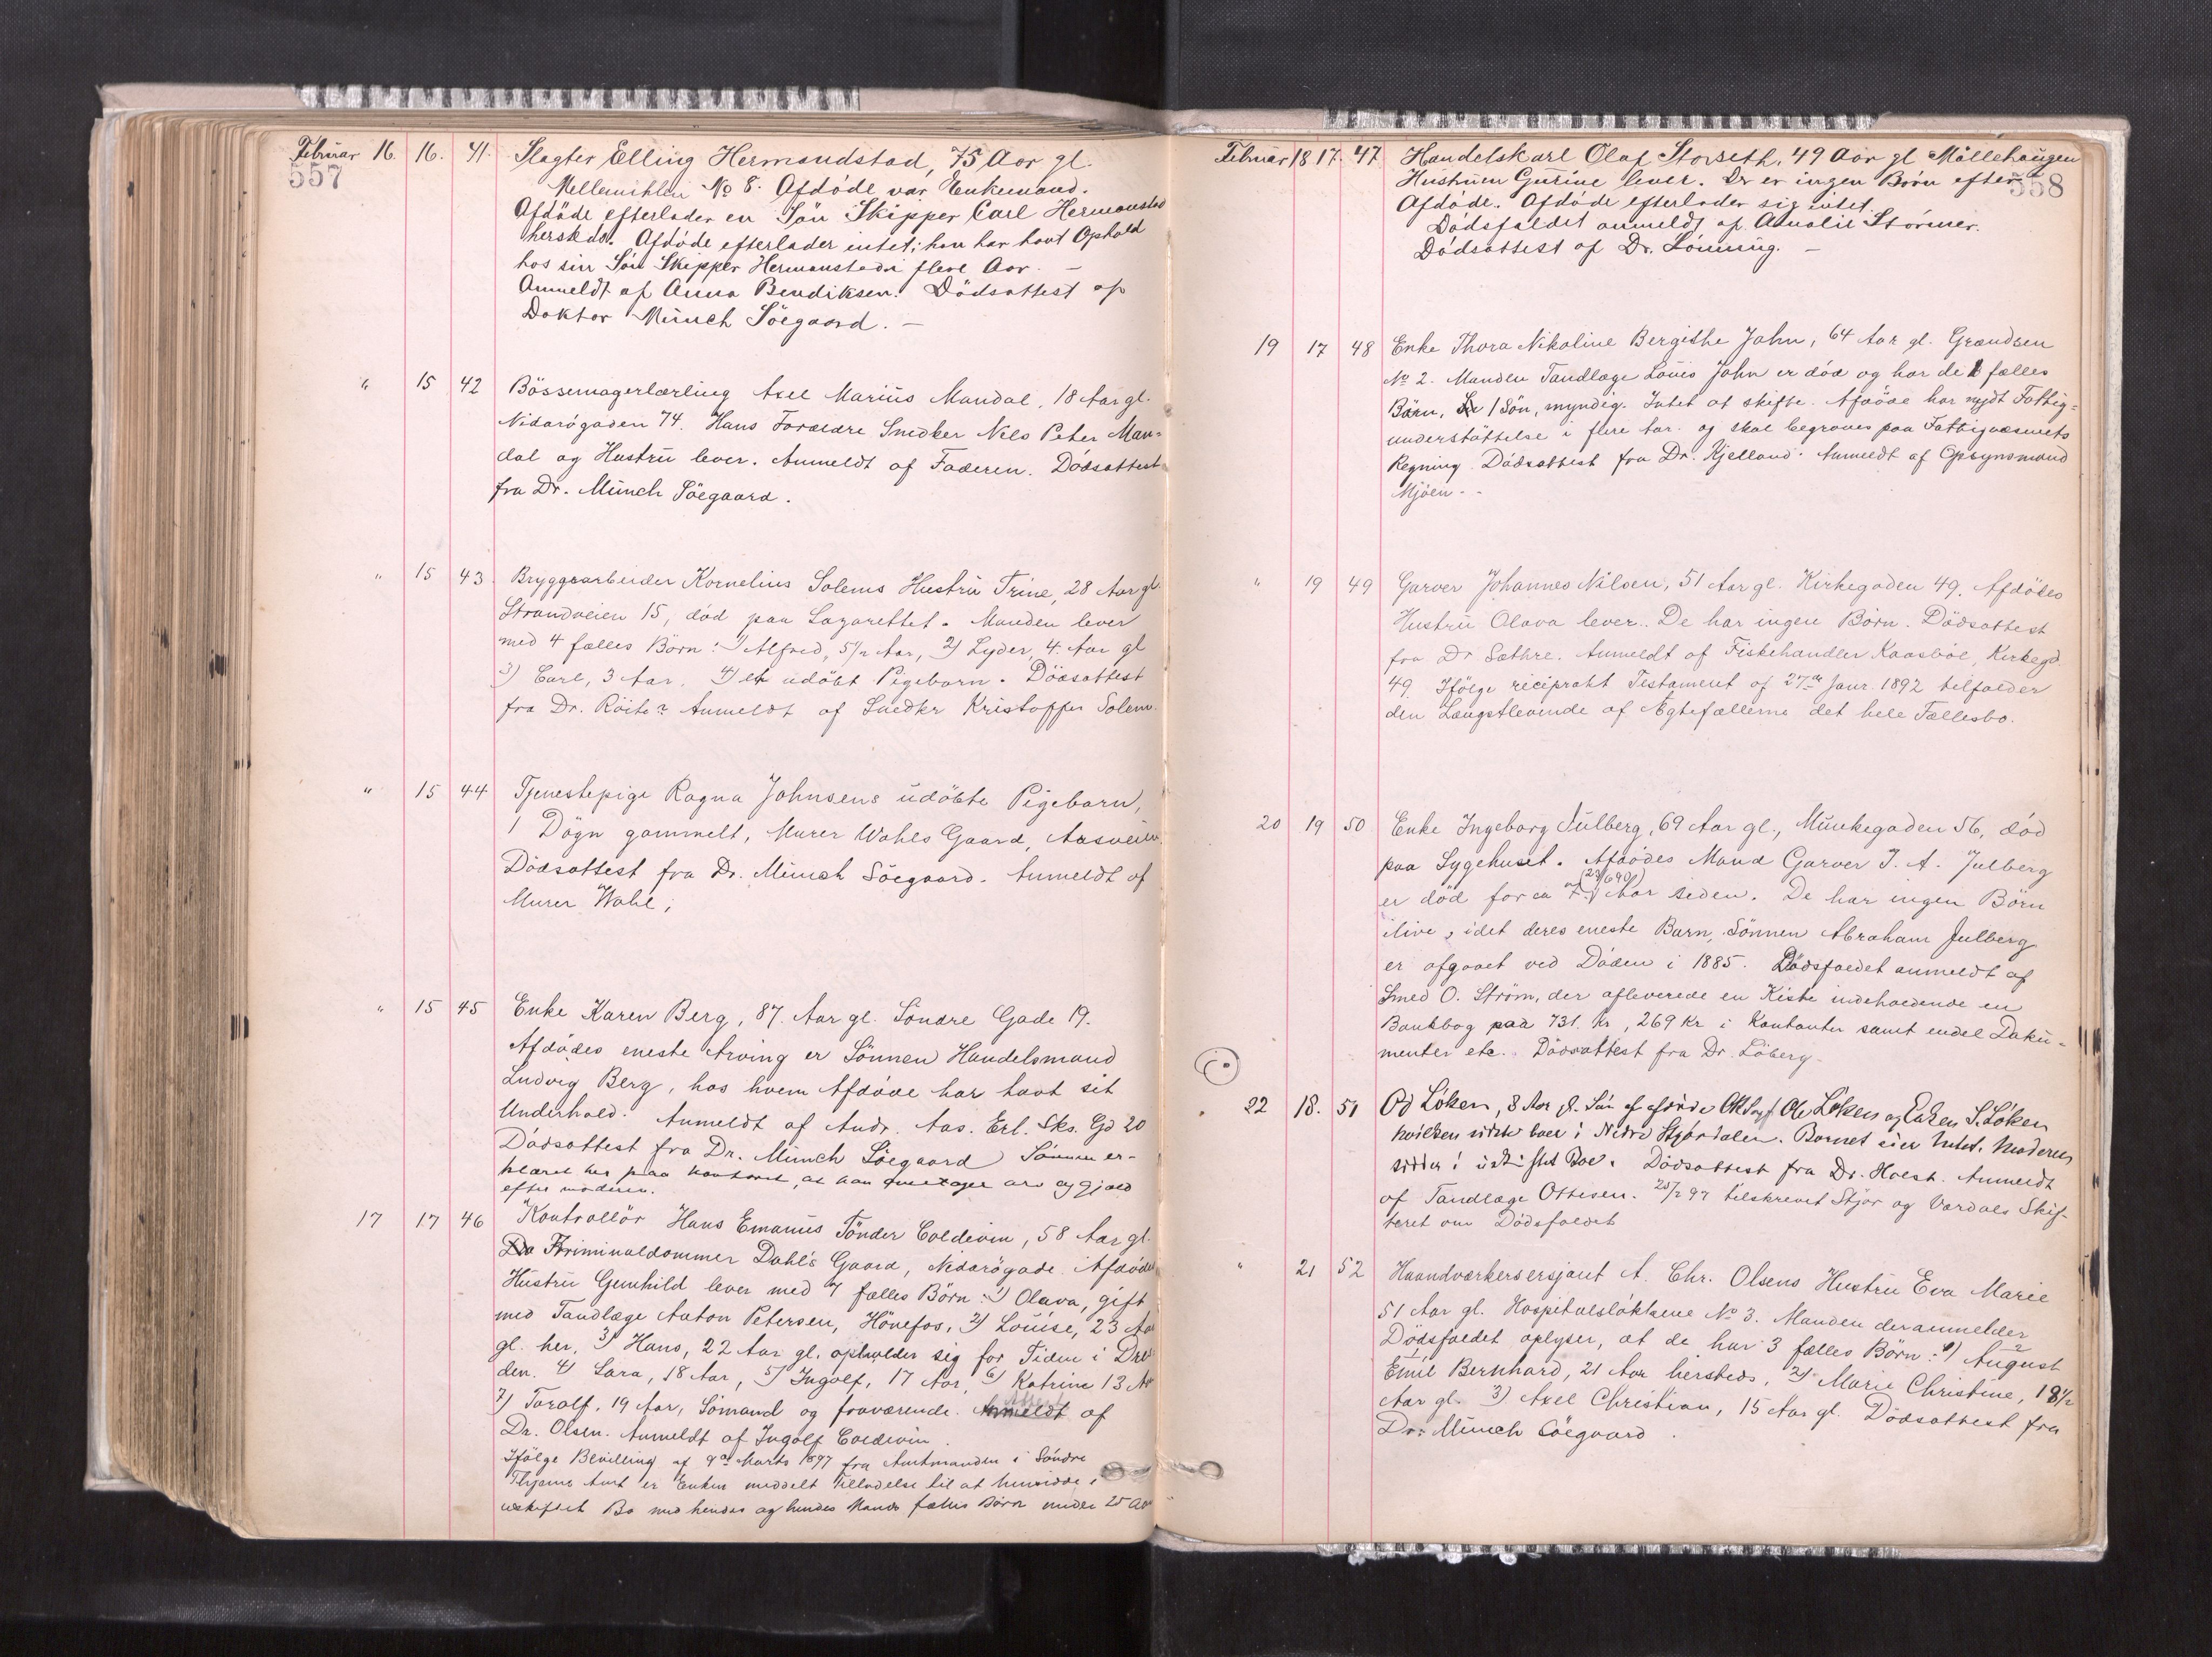 Februar 16. 16. 41. Slagter Elling Hermandstad, 75 Aar gl.
557
Mellemihlen No 8. Afdöde var Enkemand.
Afdöde efterlader en Sön Skipper Carl Hermanstad
herskds. Afdöde efterlader intet; han har havt Ophold
hos sin Sön Skipper Hermanstad i flere Aar. –
Anmeldt af Anna Bendiksen. Dödsattest af
Doktor Münch Söegaard. –
" 15 42 Bössemagerlærling Axel Marius Mandal, 18 Aar gl.
Nidarögaden 74. Hans Forældre Snedker Nels Peter Man=
dal og Hustru lever. Anmeldt af Faderen. Dödsattest
fra Dr. Münch Söegaard.
" 15 43. Bryggearbeider Kornelius Solems Hustru Trine, 28 Aar gl.
Strandveien 15, död paa Lazarettet. Manden lever
med 4 fælles Börn: 1) Alfred, 5 1/2 Aar, 2) Lyder, 4 Aar gl
3) Carl, 3 Aar. 4) et udöbt Pigebarn. Dödsattest
fra Dr. Anmeldt af Snedkr Kristoffer Solem.
" 15 44 Tjenestepige Ragna Johnsens udöbte Pigebarn,
1 Dögn gammelt, Murer Wahls Gaard, Aasveien.
Dödsattest fra Dr. Münch Söegaard. Anmeldt af
Murer Wahl;
" 15 45 Enke Karen Berg, 87 Aar gl. Söndre Gade 19.
Afdödes eneste Arving er Sönnen Handelsmand
Ludvig Berg, hos hvem Afdöde har havt sit
Underhold. Anmeldt af Andr. Aas. Erl. Sks. Gd 20
Dödsattest fra Dr. Münch Söegaard Sönnen er-
klæret her paa kontoret, at han overtager arv og gjæld
efter moderen.
17 17 46 Kontrollör Hans Emanus Tönder Coldevin, 58 Aar gl.
Kriminaldommer Dahl's Gaard, Nidarögade. Afdödes
Hustru Gunhild lever med 7 fælles Börn: 1) Olava, gift
med Tandlæge Anton Petersen, Hönefos, 2) Louise, 23 Aar
gl. her, 3) Hans, 22 Aar gl. opholder sig for Tiden i Dres
den. 4) Sara, 18 Aar, 5) Ingolf, 17 Aar, 6) Katrine 13 Aar
7) Toralf, 19 Aar, Sömand og fraværende. Anmeldt af
Dr. Olsen. Anmeldt af Ingolf Coldevin.
Ifölge Bevilling af 9de Marts 1897 fra Amtmanden i Söndre
Thjems Amt er Enken meddelt Tilladelse til at hensidde i
uskiftet Bo med hendes og hendes Mands fælles Börn under 25 Aar
Februar 18 17. 47. Handelskarl Olaf Storseth, 49 Aar gl Möllehaugen
Hustruen Gurine lever. Der er ingen Börn efter
558
Afdöde. Afdöde efterlader sig intet.
Dödsfaldet anmeldt af Amalie Störmer.
Dödsattest af Dr. Lönning. –
19 17 48 Enke Thora Nikoline Bergithe Jahn, 64 Aar gl. Grændsen
No 2. Manden Tandlæge Louis Jahn er död og har de 1 fælles
Barn, 1 Sön, myndig. Intet at skifte. Afdöde har nydt Fattig=
understöttelse i flere Aar og skal begraves paa Fattigvæsenets
Regning. Dödsattest fra Dr. Kjelland. Anmeldt af Opsynsmand
Mjöen. -
" 19 49 Garver Johannes Nilsen, 51 Aar gl. Kirkegaden 49. Afdödes
Hustru Olava lever. De har ingen Börn. Dödsattest
fra Dr Sæthre. Anmeldt af Fiskehandler Kaasböl, Kirkegd.
49. Ifölge reciprokt Testament af 27de Janr. 1892 tilfalder
den Længstlevende af Ægtefællerne det hele Fællesbo.
20 19 50 Enke Ingeborg Julberg, 69 Aar gl., Munkegaden 56, död
paa Sygehuset. Afdödes Mand Garver J. A. Julberg
er död for ca 7 (23/6 90) Aar siden. De har ingen Börn
ilive, idet deres eneste Barn, Sönnen Abraham Julberg
er afgaaet ved Döden i 1885. Dödsfaldet anmeldt af
Smed O. Ström, der afleverede en Kiste indeholdende en
Bankbog paa 731 kr, 269 kr i Kontanter samt endel Doku=
menter etc. Dödsattest fra Dr. Löberg.
22 18. 51 Od Löken, 8 Aar gl. Sön af afdöde Ole Löken og Enken S. Löken
hvilken sidste boer i Nedre Stjördalen. Barnet eier Intet. Moderen
sidder i uskiftet Boe. Dödsattest fra Dr. Holst. Anmeldt
af Tandlæge Ottesen. 25/2 97 tilskrevet Stjör og Værdals Skif-
teret om Dödsfaldet
" 21 52 Haandværkersersjant A. Chr. Olsens Hustru Eva Marie
51 Aar gl. Hospitalslökkene No 3. Manden der anmelder
Dödsfaldet oplyser, at de har 3 fælles Börn: 1) August
Emil Bernhard, 21 Aar hersteds, 2) Marie Christine, 18 1/2
Aar gl. 3) Axel Christian, 15 Aar gl. Dödsattest fra
Dr. Münch Söegaard.